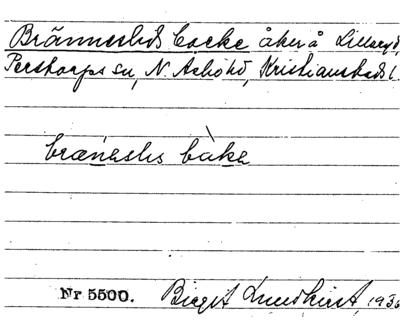 Brännestids backe åker å Lillaryd,
Perstorps sn, N. Åsbo hd, Kristianstads l.
brænestɩs bàkɐ
Nr 5500. Birgit Lundkvist, 193